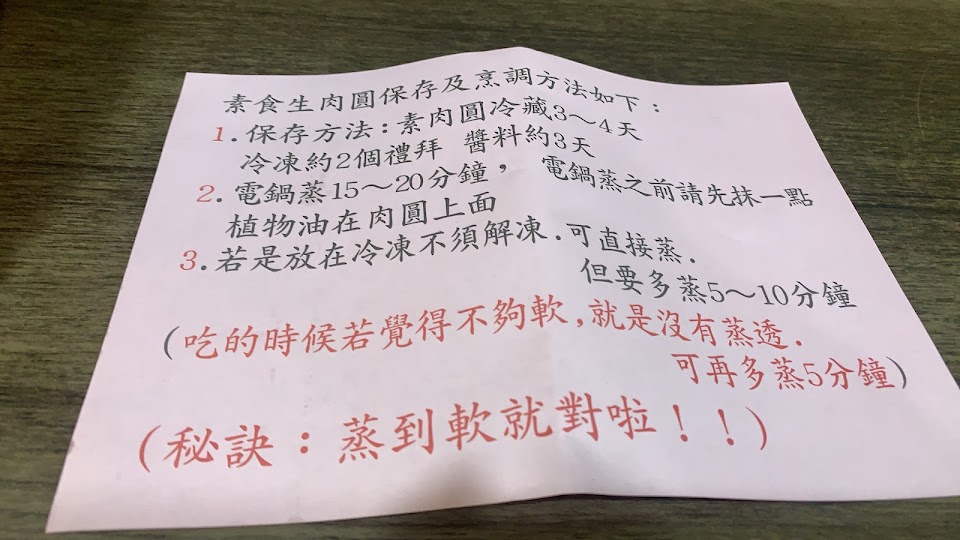 素食生肉圓保存及烹調方法如下：
1.保存方法：素肉圓冷藏3～4天
冷凍約2個禮拜 醬料約3天
2.電鍋蒸15～20分鐘， 電鍋蒸之前請先抹一點
植物油在肉圓上面
3.若是放在冷凍不須解凍.可直接蒸.
但要多蒸5～10分鐘
(吃的時候若覺得不夠軟,就是沒有蒸透.
可再多蒸5分鐘)
(秘訣：蒸到軟就對啦！！)